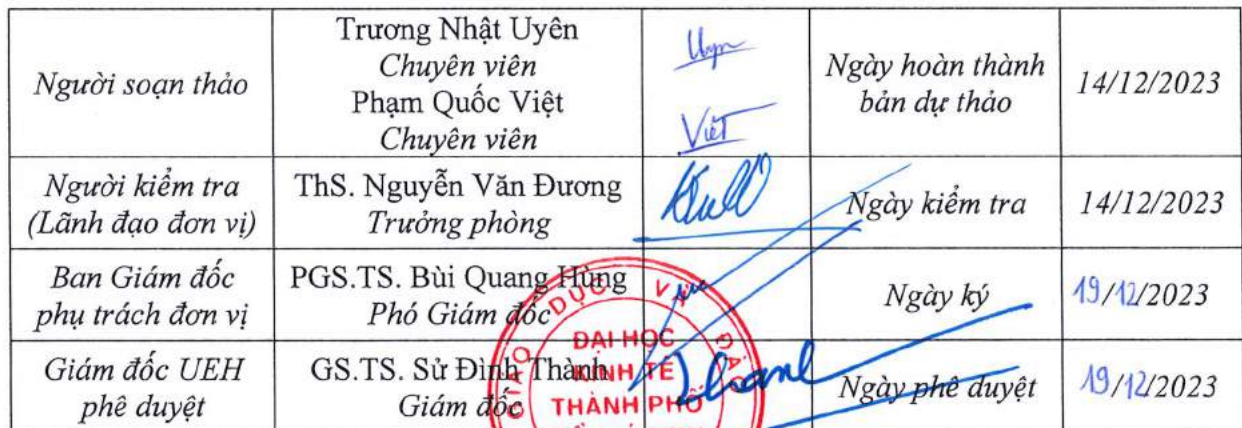 Người soạn thảo
Trương Nhật Uyên
Chuyên viên
Phạm Quốc Việt
Chuyên viên
Uyn
Việt
Ngày hoàn thành
bản dự thảo
14/12/2023
Người kiểm tra
(Lãnh đạo đơn vị)
ThS. Nguyễn Văn Đương
Trưởng phòng
Ngày kiểm tra
14/12/2023
Ban Giám đốc
phụ trách đơn vị
PGS.TS. Bùi Quang Hùng
Phó Giám đốc
Ngày ký
19/12/2023
Giám đốc UEH
phê duyệt
GS.TS. Sử Đình Thành
Giám đốc
Thanh
Ngày phê duyệt
19/12/2023
GIÁO DỤC VÀ ĐÀO
ĐẠI HỌC
KINH TẾ
THÀNH PHỐ